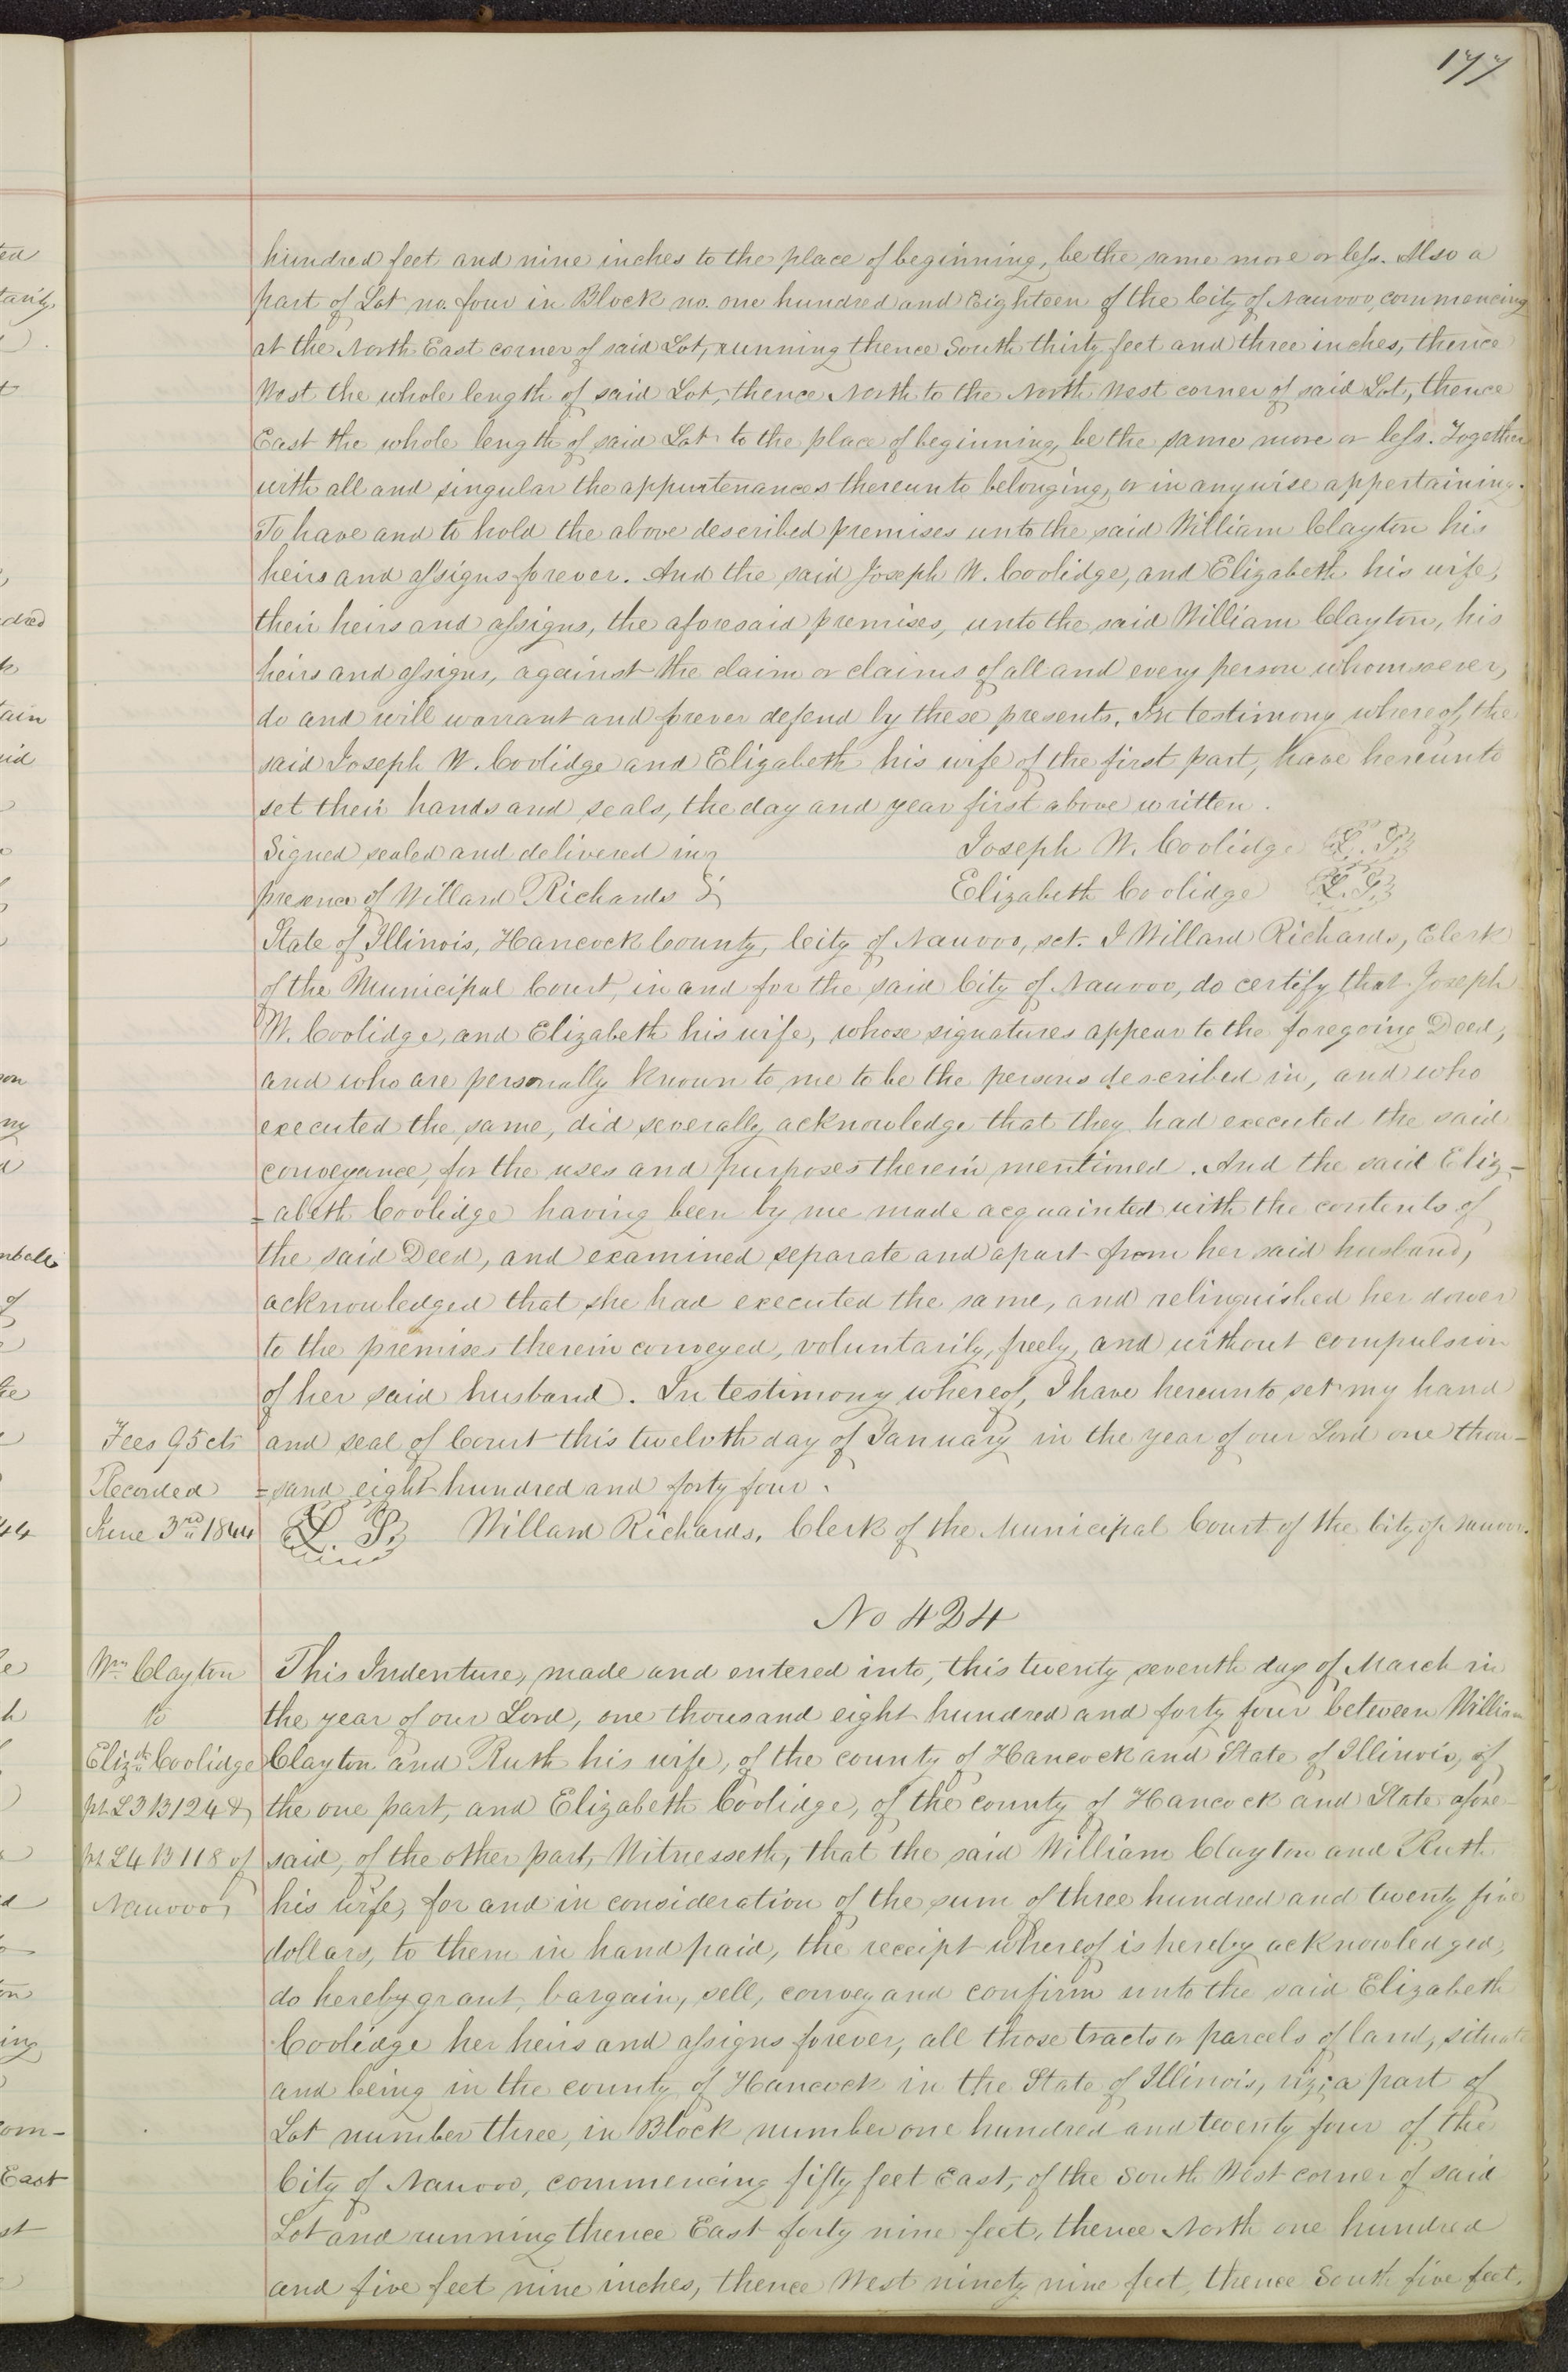 177
hundred feet and nine inches to the place of beginning, be the same more or less. Also a
part of Lot no. four in Block no. one hundred and Eighteen of the City of Nauvoo, commencing
at the North East corner of said Lot, running thence South thirty feet and three inches, thence
West the whole length of said Lot, thence North to the North West corner of said Lot, thence
East the whole length of said Lot to the place of beginning, be the same more or less. Together
with all and singular the appurtenances thereunto belonging, or in anywise appertaining.
To have and to hold the above described premises unto the said William Clayton his
heirs and assigns forever. And the said Joseph W. Coolidge, and Elizabeth his wife,
their heirs and assigns, the aforesaid premises, unto the said William Clayton, his
heirs and assigns, against the claim or claims of all and every person whomsoever,
do and will warrant and forever defend by these presents. In testimony whereof, the
said Joseph W. Coolidge and Elizabeth his wife of the first part, have hereunto
set their hands and seals, the day and year first above written.
Signed sealed and delivered in Joseph W. Coolidge L.S.
presence of Willard Richards Elizabeth Coolidge L.S.
State of Illinois, Hancock County, City of Nauvoo, sct. I Willard Richards, Clerk
of the Municipal Court, in and for the said City of Nauvoo, do certify that Joseph
W. Coolidge, and Elizabeth his wife, whose signatures appear to the foregoing Deed,
and who are personally known to me to be the persons described in, and who
executed the same, did severally acknowledge that they had executed the said
conveyance, for the uses and purposes therein mentioned. And the said Eliz-
=abeth Coolidge having been by me made acquainted with the contents of
the said Deed, and examined separate and apart from her said husband,
acknowledged that she had executed the same, and relinquished her dower
to the premises therein conveyed, voluntarily, freely, and without compulsion
of her said husband. In testimony whereof, I have hereunto set my hand
Fees 95 cts and seal of Court this twelvth day of January in the year of our Lord one thou-
Recorded =sand eight hundred and forty four.
June 3rd 1844 L.S. Willard Richards, Clerk of the Municipal Court of the City of Nauvoo.
No 424
Wm Clayton This Indenture, made and entered into, this twenty seventh day of March in
to the year of our Lord, one thousand eight hundred and forty four between William
Elizth Coolidge Clayton and Ruth his wife, of the county of Hancock and State of Illinois, of
pt L3 B124 & the one part, and Elizabeth Coolidge, of the county of Hancock and State afore-
pt L4 B118 of said, of the other part, Witnesseth, that the said William Clayton and Ruth
Nauvoo, his wife, for and in consideration of the sum of three hundred and twenty five
dollars, to them in hand paid, the receipt whereof is hereby acknowledged,
do hereby grant, bargain, sell, convey and confirm unto the said Elizabeth
Coolidge her heirs and assigns forever, all those tracts or parcels of land, situate
and being in the county of Hancock in the State of Illinois, viz; a part of
Lot number three, in Block number one hundred and twenty four of the
City of Nauvoo, commencing fifty feet East, of the South West corner of said
Lot and running thence East forty nine feet, thence North one hundred
and five feet nine inches, thence West ninety nine feet, thence South five feet,